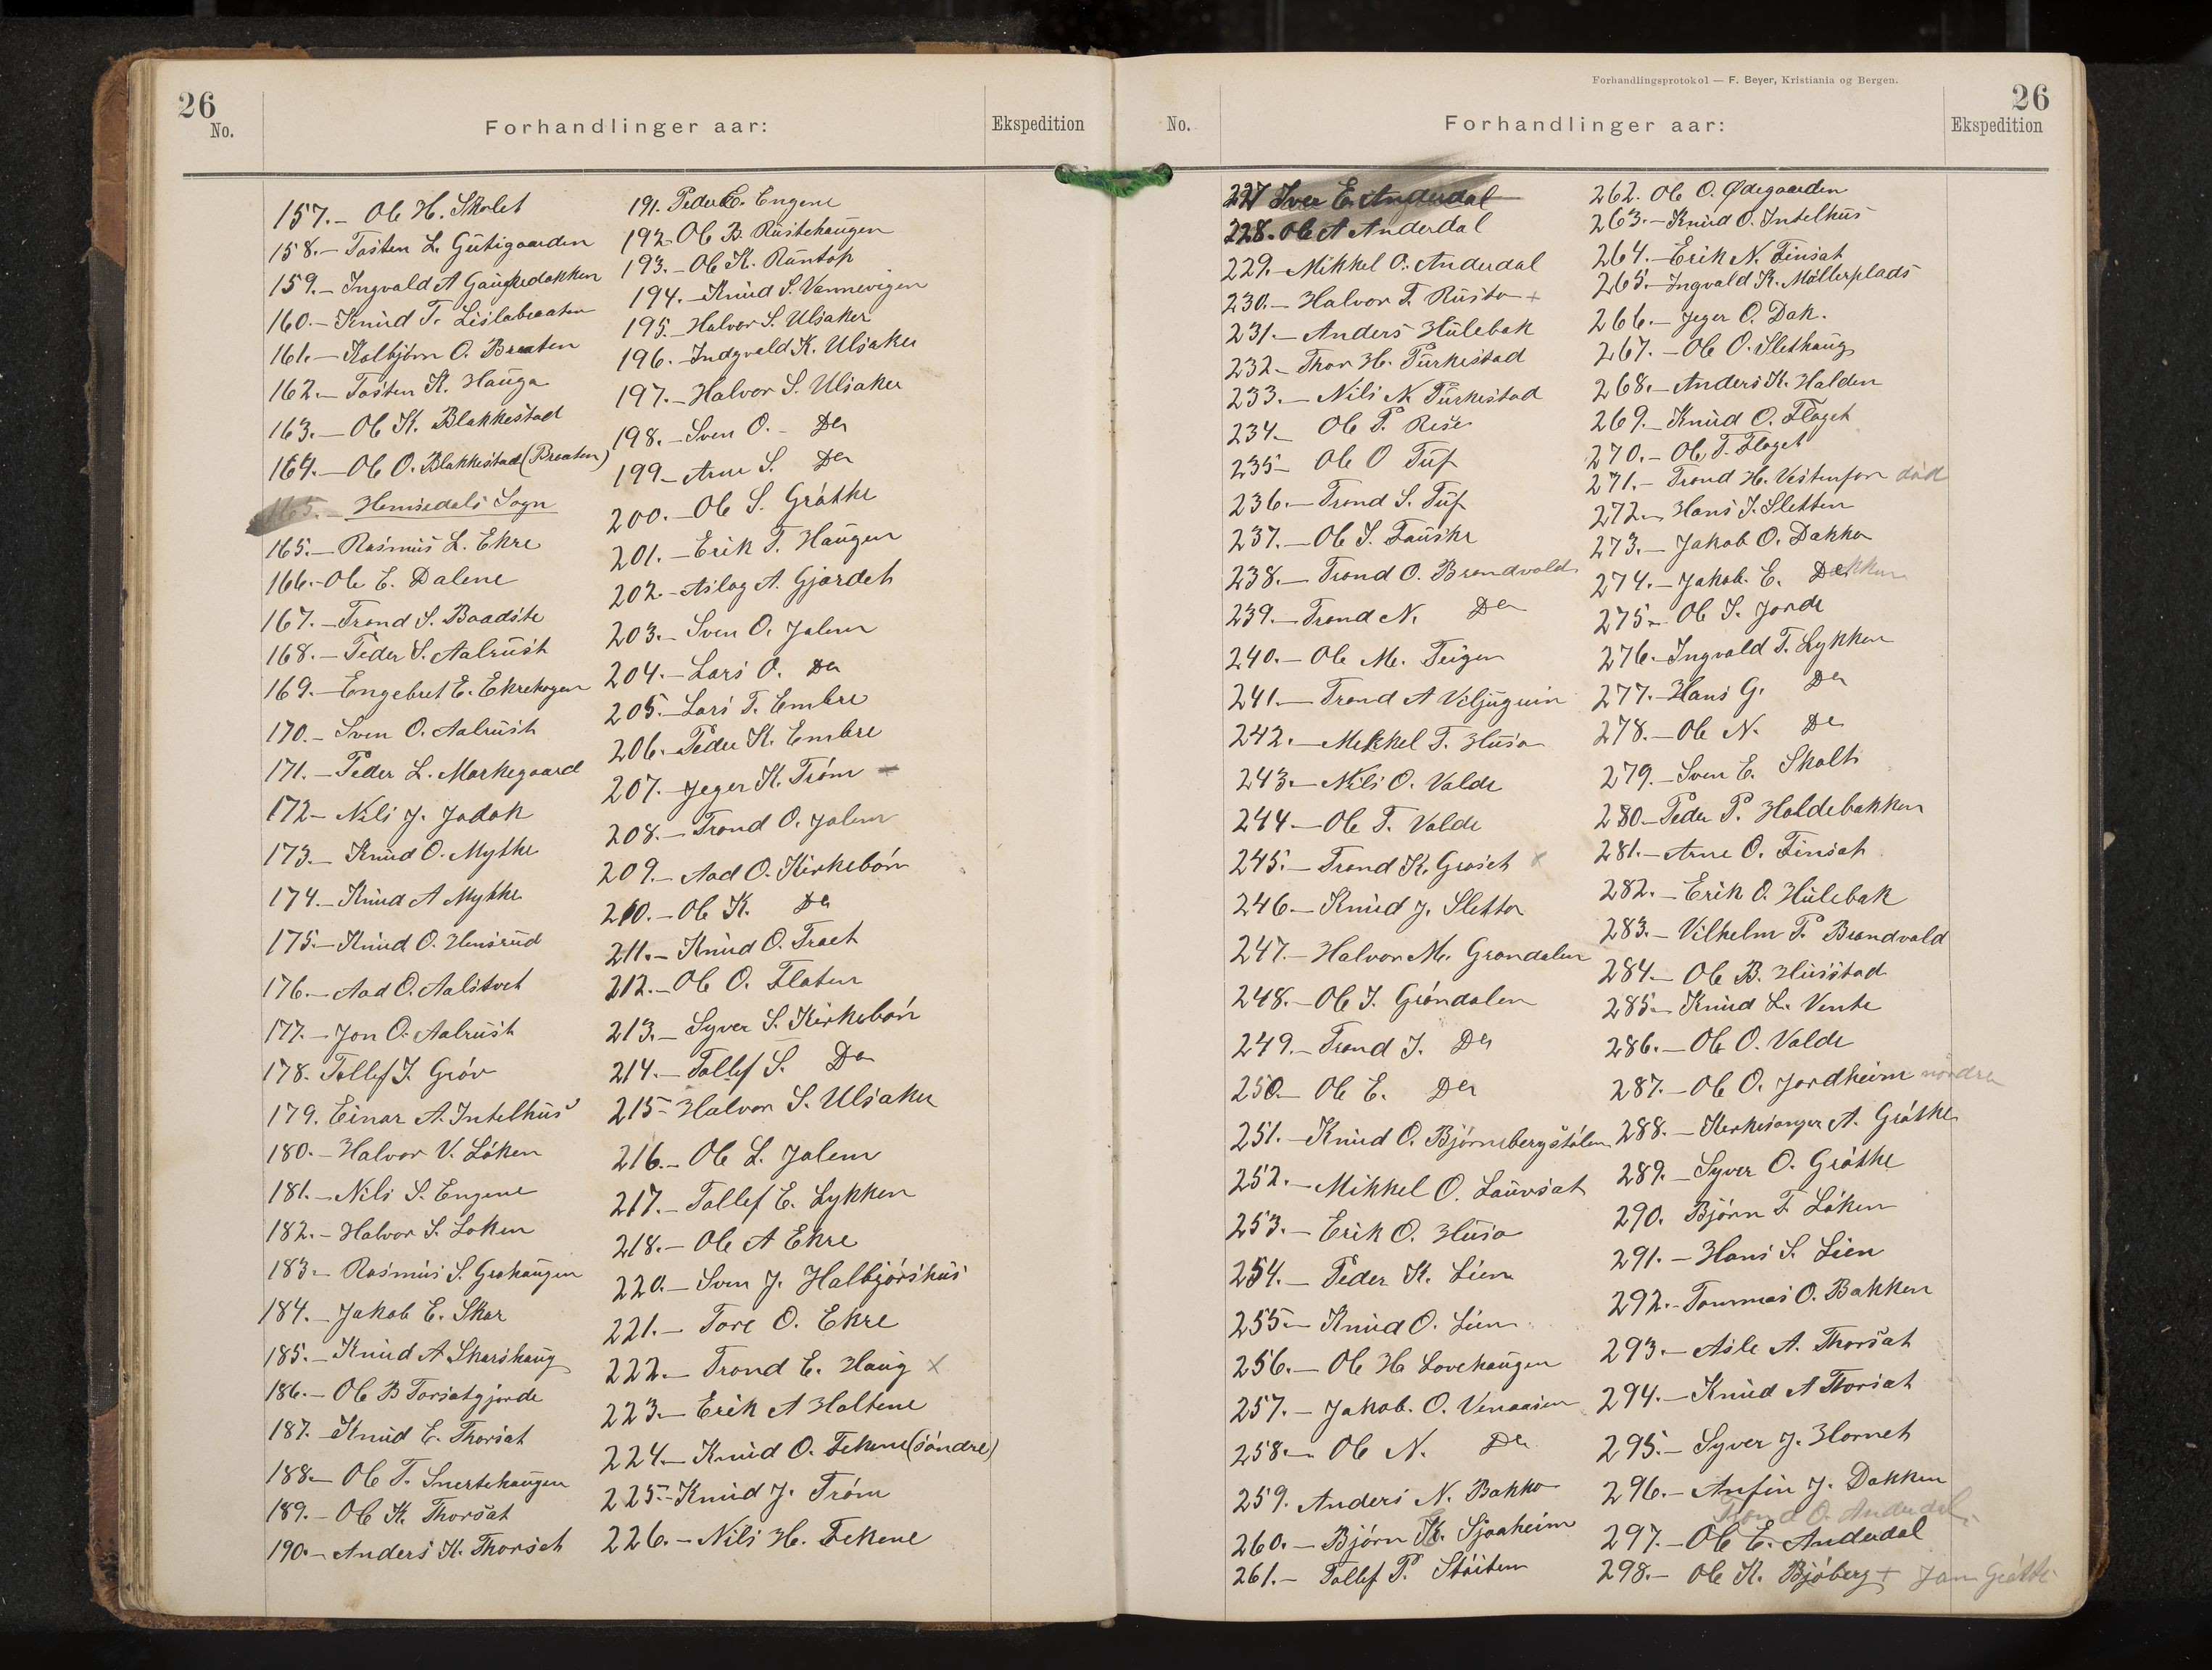 26
No.
Forhandlinger aar:
Ekspedition
157.- Ole H. Skolet
158.- Tosten L. Gutigaarden
159.- Ingvald A
160.- Knud T. Lislabraaten
161.- Kolbjørn O. Braaten
162.- Tosten K. Hauga
163.- Ole K. Blakkestad
164.- Ole O. Blakkestad (Braaten)
165.- Hemsedals Sogn
165.- Rasmus L. Ekre
166.- Ole E. Dalene
167.- Trond S. Baadste
168.- Peder S. Aalrust
169.- Engebret E. Ekrehagen
170.- Sven O. Aalrust
171.- Peder L. Markegaard
172.- Nils J. Jadak
173.- Knud O. Mythe
174.- Knud A Mykke
175.- Knud O. Hensrud
176.- Aad O. Aalstvet
177.- Jon O. Aalrust
178. Tollef T. Grøv
179. Einar A. Intelhus
180.- Halvor V. Løken
181.- Nils S. Engene
182.- Halvor S. Loken
183.- Rasmus S. Grahaugen
184.- Jakob E. Skar
185.- Knud A Skarshaug
186.- Ole B Torsatgjorde
187. Knud E. Thorsat
188.- Ole T. Snertehaugen
189.- Ole K. Thorsat
190.- Anders K. Thorset
191. Peder E. Engene
192.- Ole B. Rustehaugen
193.- Ole K. Runtop
194.- Knud S. Vannevigen
195.- Halvor S. Ulsaker
196.- Indgvald K. Ulsaker
197.- Halvor S. Ulsaker
198.- Sven O. - Do
199.- Arne S. Do
200.- Ole S. Grøthe
201.- Erik T. Haugen
202.- Aslag A. Gjørdet
203.- Sven O. Jalem
204.- Lars O. Do
205.- Lars T. Embre
206.- Peder K. Embre
207.- Jeger K. Trøm
208.- Trond O. Jalem
209.- Aad O. Kirkebøn
210.- Ole K. Do
211.- Knud O. Traet
212.- Ole O. Flaten
213.- Syver S. Kirkebøn
214.- Tollef S. Do
215.- Halvor S. Ulsaker
216.- Ole L. Jalem
217.- Tollef E. Lykken
218.- Ole A Ekre
220.- Sven J. Halbjørshus
221.- Tore O. Ekre
222.- Trond E. Haug x
223.- Erik A Holtene
224.- Knud O. Fekene (søndre)
225.- Knud J. Trøm
226.- Nils H. Fekene
Forhandlingsprotokol — F. Beyer, Kristiania og Bergen.
26
No.
Forhandlinger aar:
Ekspedition
227 Iver E. Anderdal
228. Ole A Anderdal
229.- Mikkel O. Anderdal
230.- Halvor T. Rusto +
231.- Anders Hulebak
232.- Thor H. Turkestad
233.- Nils N. Turkestad
234.- Ole P.
235.- Ole O Tuf
236.- Trond S. Tuf
237.- Ole S. Fauske
238.- Trond O. Brandvold
239.- Trond N. Do
240.- Ole M. Teigen
241.- Trond A
242.- Mekkel T. Huso
243.- Nils O. Valde
244.- Ole T. Valde
245.- Trond K. Groset x
246.- Knud J. Sletto
247.- Halvor M. Grøndalen
248.- Ole T. Grøndalen
249.- Trond T. Do
250.- Ole E. Do
251.- Knud O. Bjørnebergstølen
252.- Mikkel O. Laursat
253.- Erik O. Huso
254.- Peder K. Lien
255.- Knud O. Lien
256.- Ole H Lovehaugen
257.- Jakob. O. Venaasen
258.- Ole N. Do
259. Anders N. Bakko
260.- Bjørn K. Sjaaheim
261.- Tollef P. Støiten
262. Ole O. Ødegaarden
263.- Knud O. Intelhus
264.- Erik N. Finsat
265.- Ingvald K. Møllerplads
266.- Jeger O. Dak.
267.- Ole O. Slethaug
268.- Anders K. Halden
269.- Knud O. Flaget
270.- Ole T. Flaget
271.- Trond H. Vestenfor død
272.- Hans T. Sletten
273.- Jakob O. Dokken
274.- Jakob. E. Dokken
275.- Ole S. Jorde
276.- Ingvald T. Lykken
277.- Hans G. Do
278.- Ole N. Do
279.- Sven E. Skolt
280.- Peder P. Holdebakken
281.- Arne O. Finsat
282.- Erik O. Hulebak
283.- Vilhelm P. Brandvold
284.- Ole B. Husstad
285.- Knud L. Vente
286.- Ole O. Valde
287.- Ole O. Jordheim nordre
288.- Kirkesanger A. Grøthe
289.- Syver O. Grøthe
290. Bjørn T. Løken
291.- Hans S. Lien
292.- Tommas O. Bakken
293.- Asle A. Thorsat
294.- Knud A Thorsat
295.- Syver J. Hornet
296.- Anfin J. Dokken
Trond O. Anderdal.
297.- Ole E. Anderdal
298.- Ole K. Bjøberg + Jan Grøthe